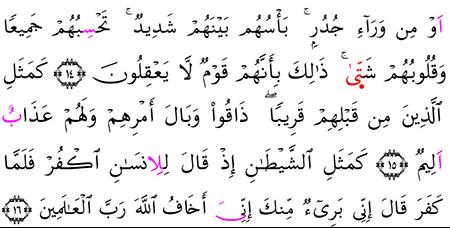 اَوْ مِن وَرَآءِ جُدُرٍۭ ۚ بَأْسُهُم بَيْنَهُمْ شَدِيدٌ ۚ تَحْسِبُهُمْ جَمِيعًا
وَقُلُوبُهُمْ شَتّ۪ىٰ ۚ ذَٰلِكَ بِأَنَّهُمْ قَوْمٌ لَّا يَعْقِلُونَ ۝١٤ كَمَثَلِ
ٱلَّذِينَ مِن قَبْلِهِمْ قَرِيبًا ۖ ذَاقُوا۟ وَبَالَ أَمْرِهِمْ وَلَهُمْ عَذَابٌ
اَلِيمٌ ۝١٥ كَمَثَلِ ٱلشَّيْطَٰنِ إِذْ قَالَ لِلِانسَٰنِ ٱكْفُرْ فَلَمَّا
كَفَرَ قَالَ إِنِّى بَرِىٓءٌ مِّنكَ إِنِّىَ أَخَافُ ٱللَّهَ رَبَّ ٱلْعَٰلَمِينَ ۝١٦